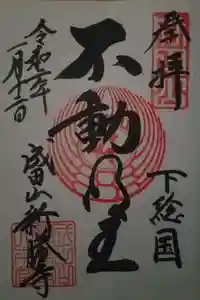 奉拝
下総国
不動明王
成田山新勝寺
令和二年
一月十二日